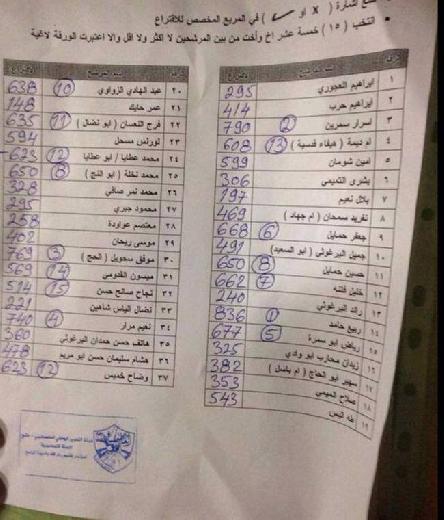 ضع اشارة ( X او ✓ ) في المربع المخصص للاقتراع
• انتخب ( ١٥ ) خمسة عشر اخ وأخت من بين المرشحين لا اكثر ولا اقل والا اعتبرت الورقة لاغية
١ ابراهيم العجوري 295
٢ ابراهيم حرب 414
٣ اسرار سمرين 2 790
٤ ام ديمة ( هيفاء قدسية ) 13 608
٥ امين شومان 599
٦ بشرى التميمي 306
٧ بلال نعيم 197
٨ تغريد سمحان ( ام جهاد ) 469
٩ جعفر حمايل 6 668
١٠ جميل البرغوثي ( ابو السعيد ) 491
١١ حسين حمايل 8 650
١٢ خليل 7 662
١٣ رائد البرغوثي 240
١٤ ربيع حامد 1 836
١٥ رياض ابو سمرة 5 677
١٦ زيدان محارب ابو وادي 325
١٧ سهير ابو الحاج ( ام باسل ) 382
١٨ صلاح 353
١٩ طه 543
٢٠ عبد الهادي الزواوي 10 638
٢١ عمر حايك 148
٢٢ فرج النعسان ( ابو نضال ) 11 635
٢٣ لورنس 594
٢٤ محمد عطايا / ابو عطايا 12 623
٢٥ محمد نخلة ( ابو النج ) 8 650
٢٦ محمد نمر صافي 328
٢٧ محمود جبري 295
٢٨ معتصم عواردة 258
٢٩ موسى ريحان 402
٣٠ موفق سحويل ( الحج ) 3 769
٣١ ميسون القدومي 14 569
٣٢ نجاح صالح حسن 15 514
٣٣ نضال الياس شاهين 221
٣٤ نعيم مرار 4 740
٣٥ هاتف حسن حمدان البرغوثي 360
٣٦ هشام سليمان حسن ابو مريم 478
٣٧ وضاح خميس 12 623